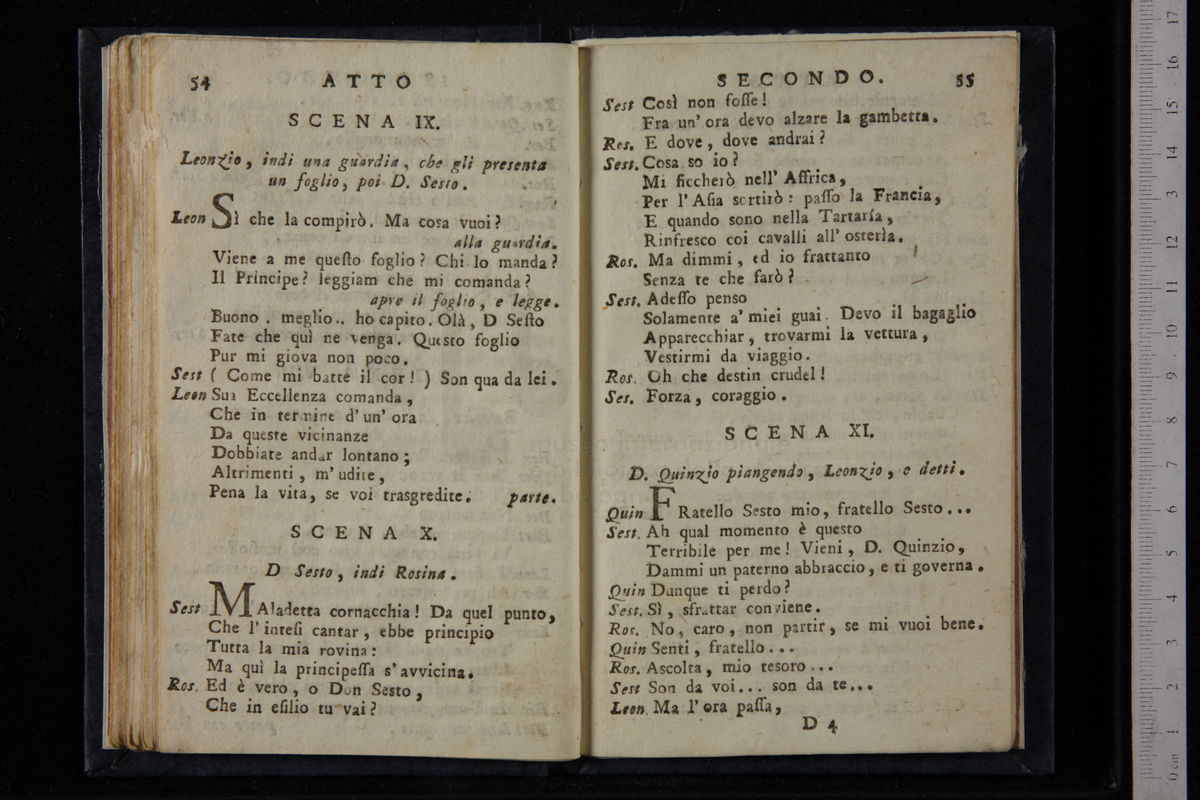 54 ATTO
SCENA IX.
Leonzio, indi una guardia, che gli presenta
un foglio, poi D. Sesto.
Leon Sì che la compirò. Ma cosa vuoi?
alla guardia.
Viene a me queſto foglio? Chi lo manda?
Il Principe? leggiam che mi comanda?
apre il foglio, e legge.
Buono . meglio.. ho capito. Olà, D Seſto
Fate che quì ne venga. Questo foglio
Pur mi giova non poco.
Sest ( Come mi batte il cor! ) Son qua da lei.
Leon Sua Eccellenza comanda,
Che in termine d'un' ora
Da queste vicinanze
Dobbiate andar lontano;
Altrimenti, m' udite,
Pena la vita, se voi trasgredite. parte.
SCENA X.
D. Sesto, indi Rosina.
Sest MAladetta cornacchia! Da quel punto,
Che l' inteſi cantar, ebbe principio
Tutta la mia rovina:
Ma quì la principeſſa s' avvicina.
Ros. Ed è vero, o Don Sesto,
Che in eſilio tu vai?
SECONDO. 55
Sest Così non foſſe!
Fra un' ora devo alzare la gambetta.
Ros. E dove, dove andrai?
Sest. Cosa so io?
Mi ficcherò nell' Affrica,
Per l' Aſia sortirò: paſſo la Francia,
E quando sono nella Tartarìa,
Rinfresco coi cavalli all' osterìa.
Ros. Ma dimmi, ed io frattanto
Senza te che farò?
Sest. Adeſſo penso
Solamente a' miei guai. Devo il bagaglio
Apparecchiar, trovarmi la vettura,
Vestirmi da viaggio.
Ros. Oh che destin crudel!
Ses. Forza, coraggio.
SCENA XI.
D. Quinzio piangendo, Leonzio, e detti.
Quin FRatello Sesto mio, fratello Sesto...
Sest. Ah qual momento è questo
Terribile per me! Vieni, D. Quinzio,
Dammi un paterno abbraccio, e ti governa.
Quin Dunque ti perdo?
Sest. Sì, sfrattar conviene.
Ros. No, caro, non partir, se mi vuoi bene.
Quin Senti, fratello...
Ros. Ascolta, mio tesoro...
Sest Son da voi... son da te...
Leon. Ma l' ora paſſa,
D 4
0 cm 1 2 3 4 5 6 7 8 9 10 11 12 13 14 15 16 17